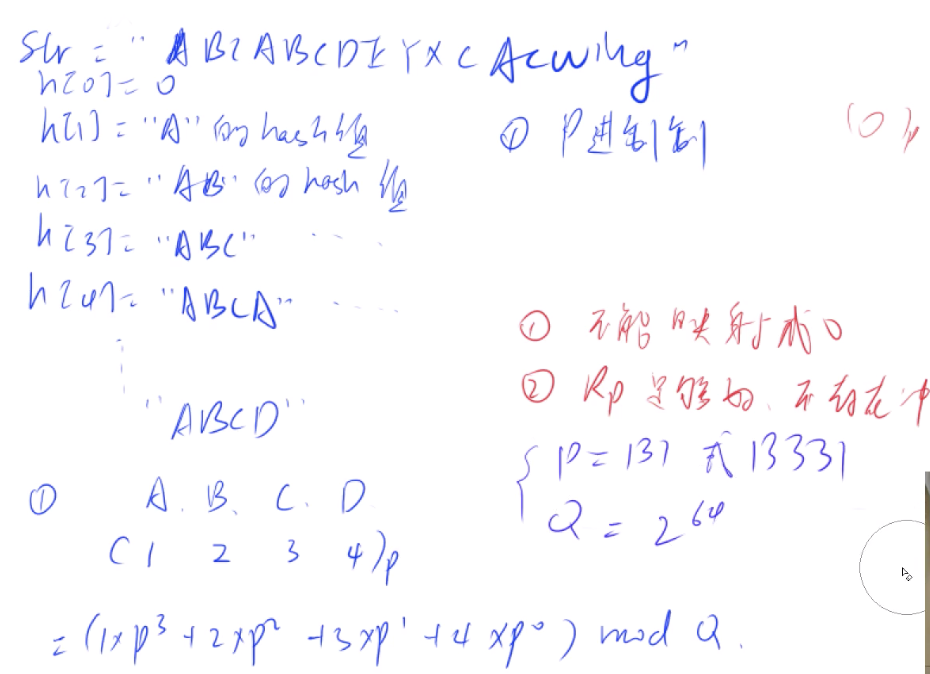 Str = "ABCABCDEYXCAcwing"
h[0] = 0
h[1] = "A" 的hash值
h[2] = "AB" 的hash值
h[3] = "ABC" ......
h[4] = "ABCA" ......
"ABCD"
① A. B. C. D
( 1 2 3 4 )p
= (1×p³ + 2×p² + 3×p¹ + 4×p⁰) mod Q.
① P进制制
(0)p
① 不能映射成0
② Rp足够好. 不存在冲
{ P = 131 或 13331
Q = 2⁶⁴